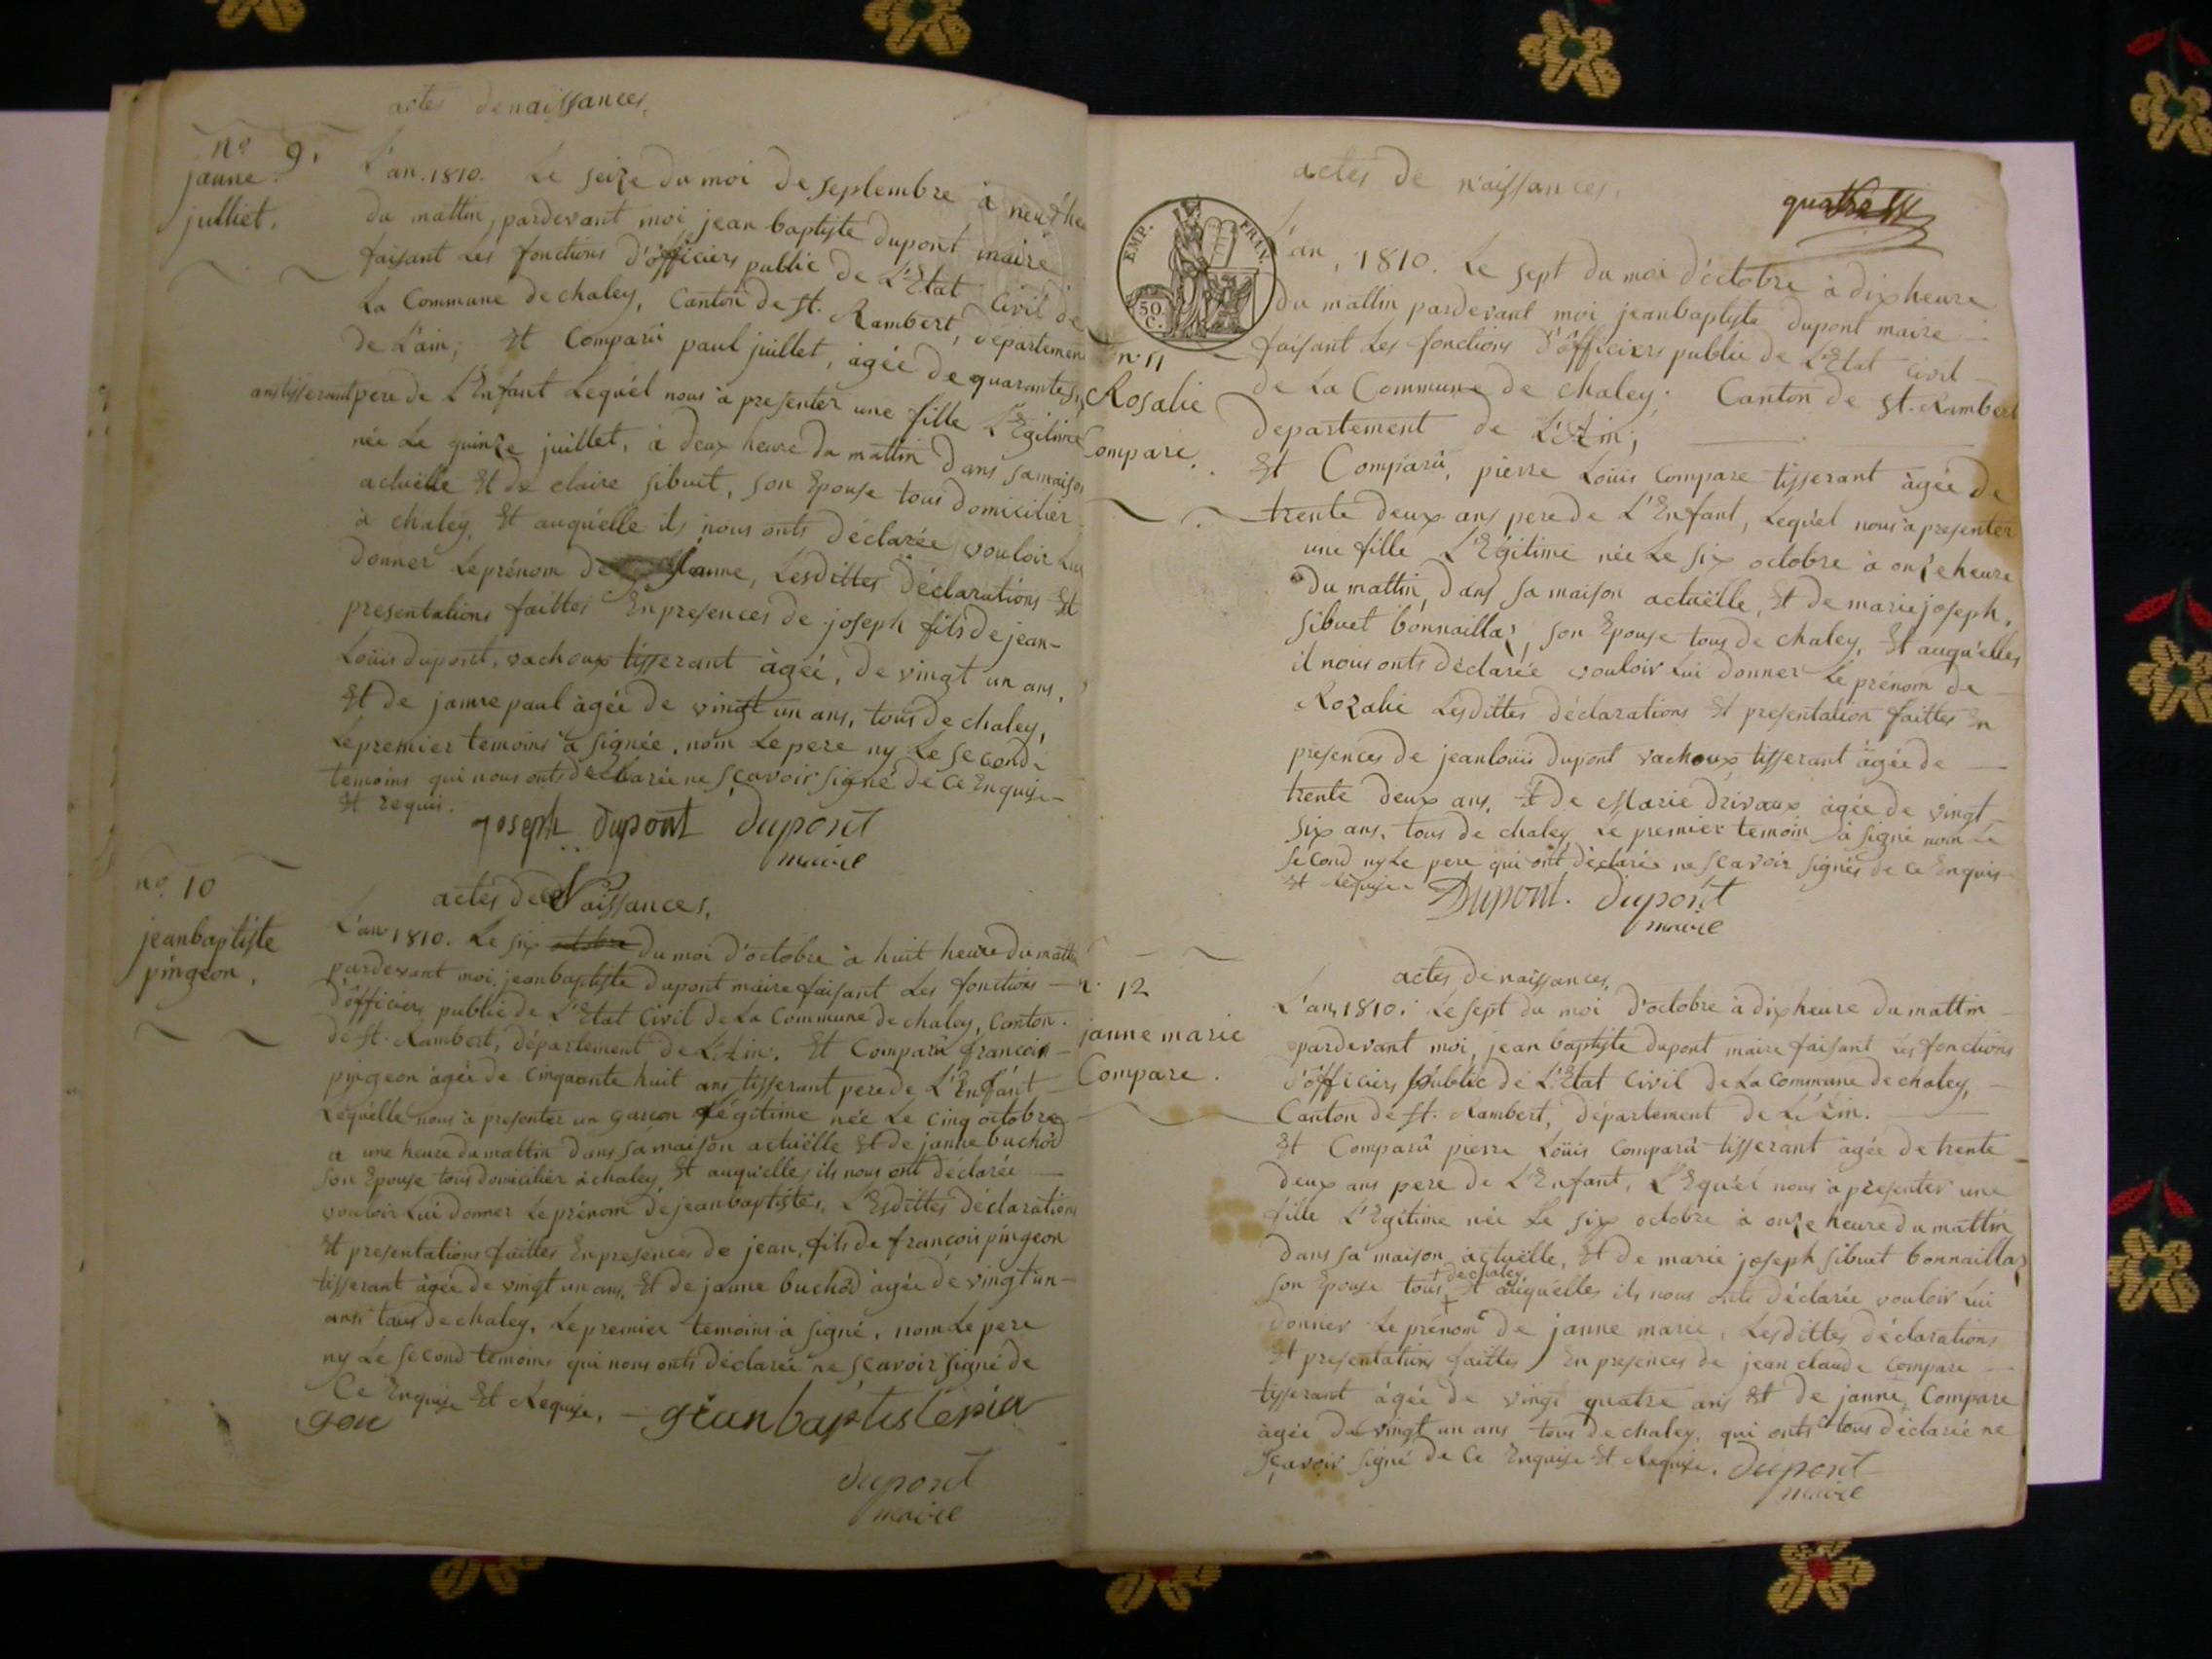 actes de naissances.
n.º 9.
janne
julliet.
L'an. 1810. Le seize du moi de septembre à neuf heu
du mattin, pardevant moi jean baptiste dupont maire
faisant Les fonctions d'officiers public de L'Etat Civil de
La Commune de chaley, Canton de st. Rambert, département
de L'ain; Et Comparû paul juillet, àgée de quarante
ans tisserant pere de L'Enfant Lequél nous à presenter une fille L'Egitime
née Le quinze juillet, à deux heure du mattin dans sa maison
actuëlle Et de claire sibuet, son Epouse tous domicilier
à chaley, Et auquélle ils nous onts déclarée vouloir Lui
donner Le prénom de janne, Lesdittes déclarations Et
presentations faittes En presences de joseph fils de jean-
Loüis dupont, vachoux tisserant àgée, de vingt un ans,
Et de janne paul àgée de vingt un ans, tous de chaley,
Le premier temoins à signée, nom Le pere ny Le second
temoins qui nous onts déclarée ne sçavoir signé de Ce Enquise
Et requis.
joseph dupont dupont
maire
n.º 10
jean baptiste
pingeon.
actes de Naissances.
L'an 1810. Le six octobre du moi d'octobre à huit heure du mattin
pardevant moi, jean baptiste dupont maire faisant Les fonctions
d'officiers public de L'Etat Civil de La Commune de chaley, Canton
de st. Rambert, département de L'Ain. Et Comparû françois
pingeon àgée de cinquante huit ans tisserant pere de L'Enfant
Lequélle nous à presenter un garçon Légitime née Le cinq octobre
à une heure du mattin dans sa maison actuëlle Et de janne buchod
son Epouse tous domicilier à chaley, Et auquélle ils nous ont déclarée
vouloir Lui donner Le prénom de jean baptiste, L'Esdittes déclarations
Et presentations faittes En presences de jean, fils de françois pingeon
tisserant àgée de vingt un ans, Et de janne buchod àgée de vingt un
ans tous de chaley, Le premier temoins à signé, nom Le pere
ny Le second temoins qui nous onts déclarée ne sçavoir signé de
Ce Enquise Et Requise. geanbaptistepin
gon
dupont
maire
actes de naissances.
quatre
EMP. FRAN.
50.
C.
n.º 11
Rosalie
Compare.
L'an, 1810. Le sept du moi d'octobre à dix heure
du mattin pardevant moi jean baptiste dupont maire
faisant Les fonctions d'officiers public de L'Etat Civil
de La Commune de chaley. Canton de st. Rambert
département de L'Ain;
Et Comparû, pierre Loüis Compare tisserant àgée de
trente deux ans pere de L'Enfant, Lequél nous à presenter
une fille L'Egitime née Le six octobre à onze heure
du mattin, dans sa maison actuëlle, Et de marie joseph,
sibuet bonnaillaz, son Epouse tous de chaley, Et auquélles
il nous onts déclarée vouloir Lui donner Le prénom de
Rozalie Lesdittes déclarations Et presentation faittes En
presences de jean loüis dupont vachoux tisserant àgée de
trente deux ans, Et de Marie drivaux àgée de vingt
six ans, tous de chaley, Le premier temoin à signé nom Le
second ny Le pere qui ont déclarée ne sçavoir signés de Ce Enquis
Et Réquise. Dupont. dupont
maire
n.º 12
janne marie
Compare.
actes de naissances.
L'an, 1810. Le sept du moi d'octobre à dix heure du mattin
pardevant moi, jean baptiste dupont maire faisant Les fonctions
d'officiers public de L'Etat Civil de La Commune de chaley,
Canton de st. Rambert, département de L'Ain.
Et Comparû pierre Loüis Comparû tisserant àgée de trente
deux ans pere de L'Enfant, L'Equél nous à presenter une
fille L'Egitime née Le six octobre à onze heure du mattin
dans sa maison actuëlle, Et de marie joseph sibuet bonnaillaz
+ de chaley
son Epouse tous + Et auquélles ils nous onts déclarée vouloir Lui
donner Le prénom de janne marie, Lesdittes déclarations
Et presentations faittes En presences de jean claude Compare
tisserant àgée de vingt quatre ans Et de janne Compare
àgée de vingt un ans tous de chaley, qui onts tous déclarée ne
sçavoir signé de Ce Enquise Et Requise. dupont
maire